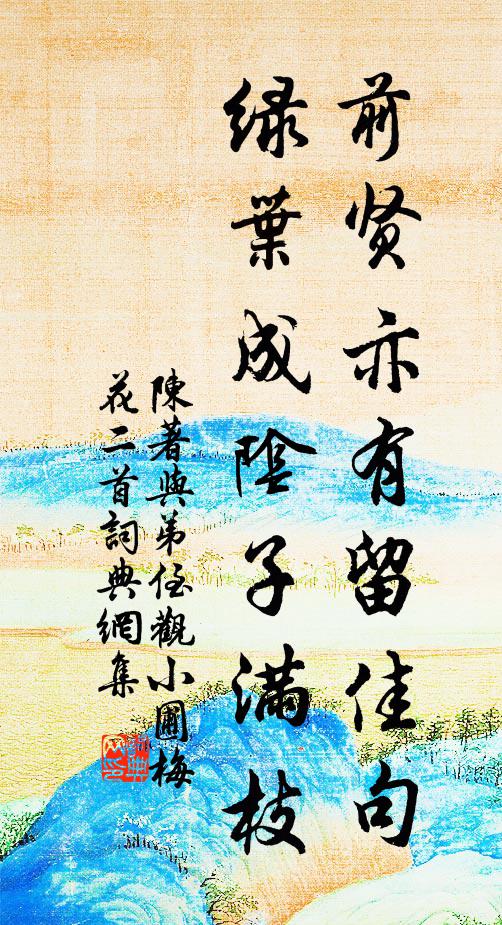 前贤亦有留佳句
绿葉成陰子满枝
陳著與弟侄觀小圃梅
花二首詞典網集